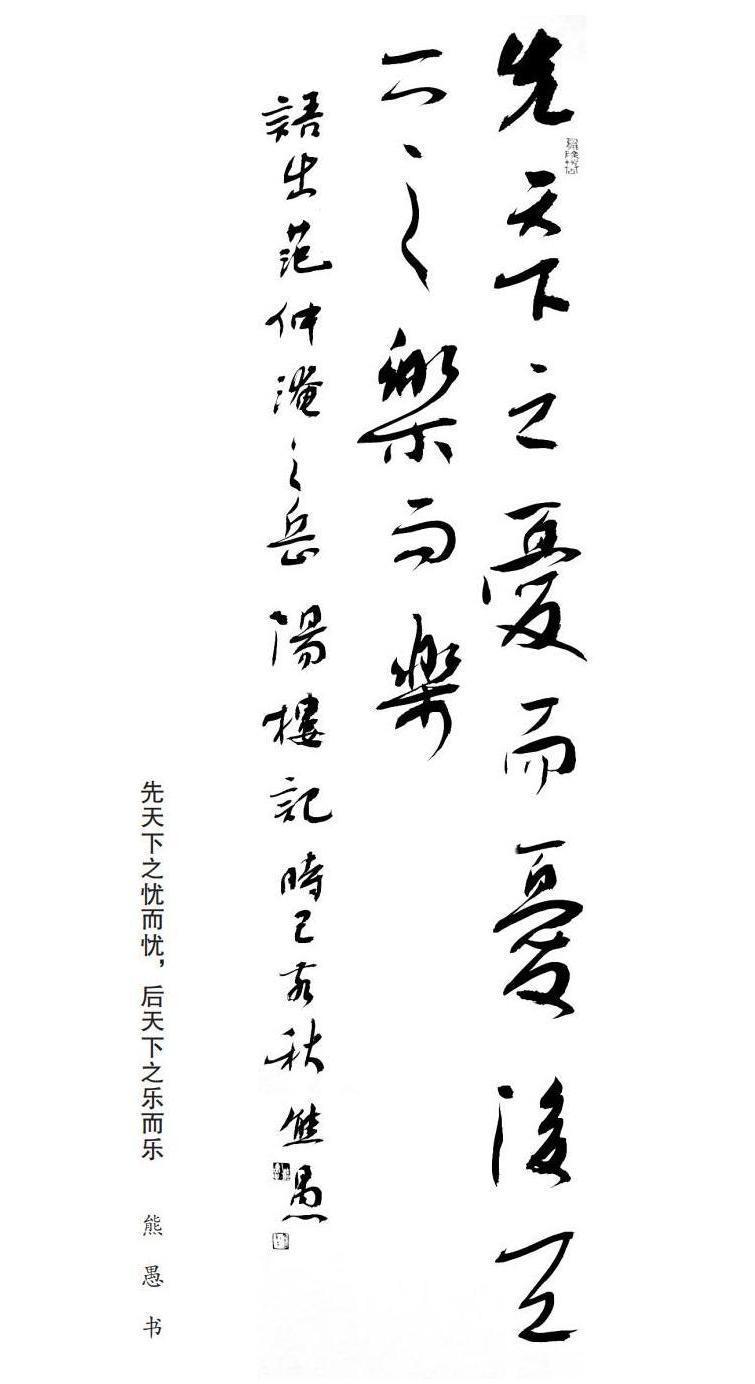 先天下之憂而憂後天
下之樂而樂
語出范仲淹之岳陽樓記時己亥秋熊愚
先天下之忧而忧，后天下之乐而乐 熊愚书